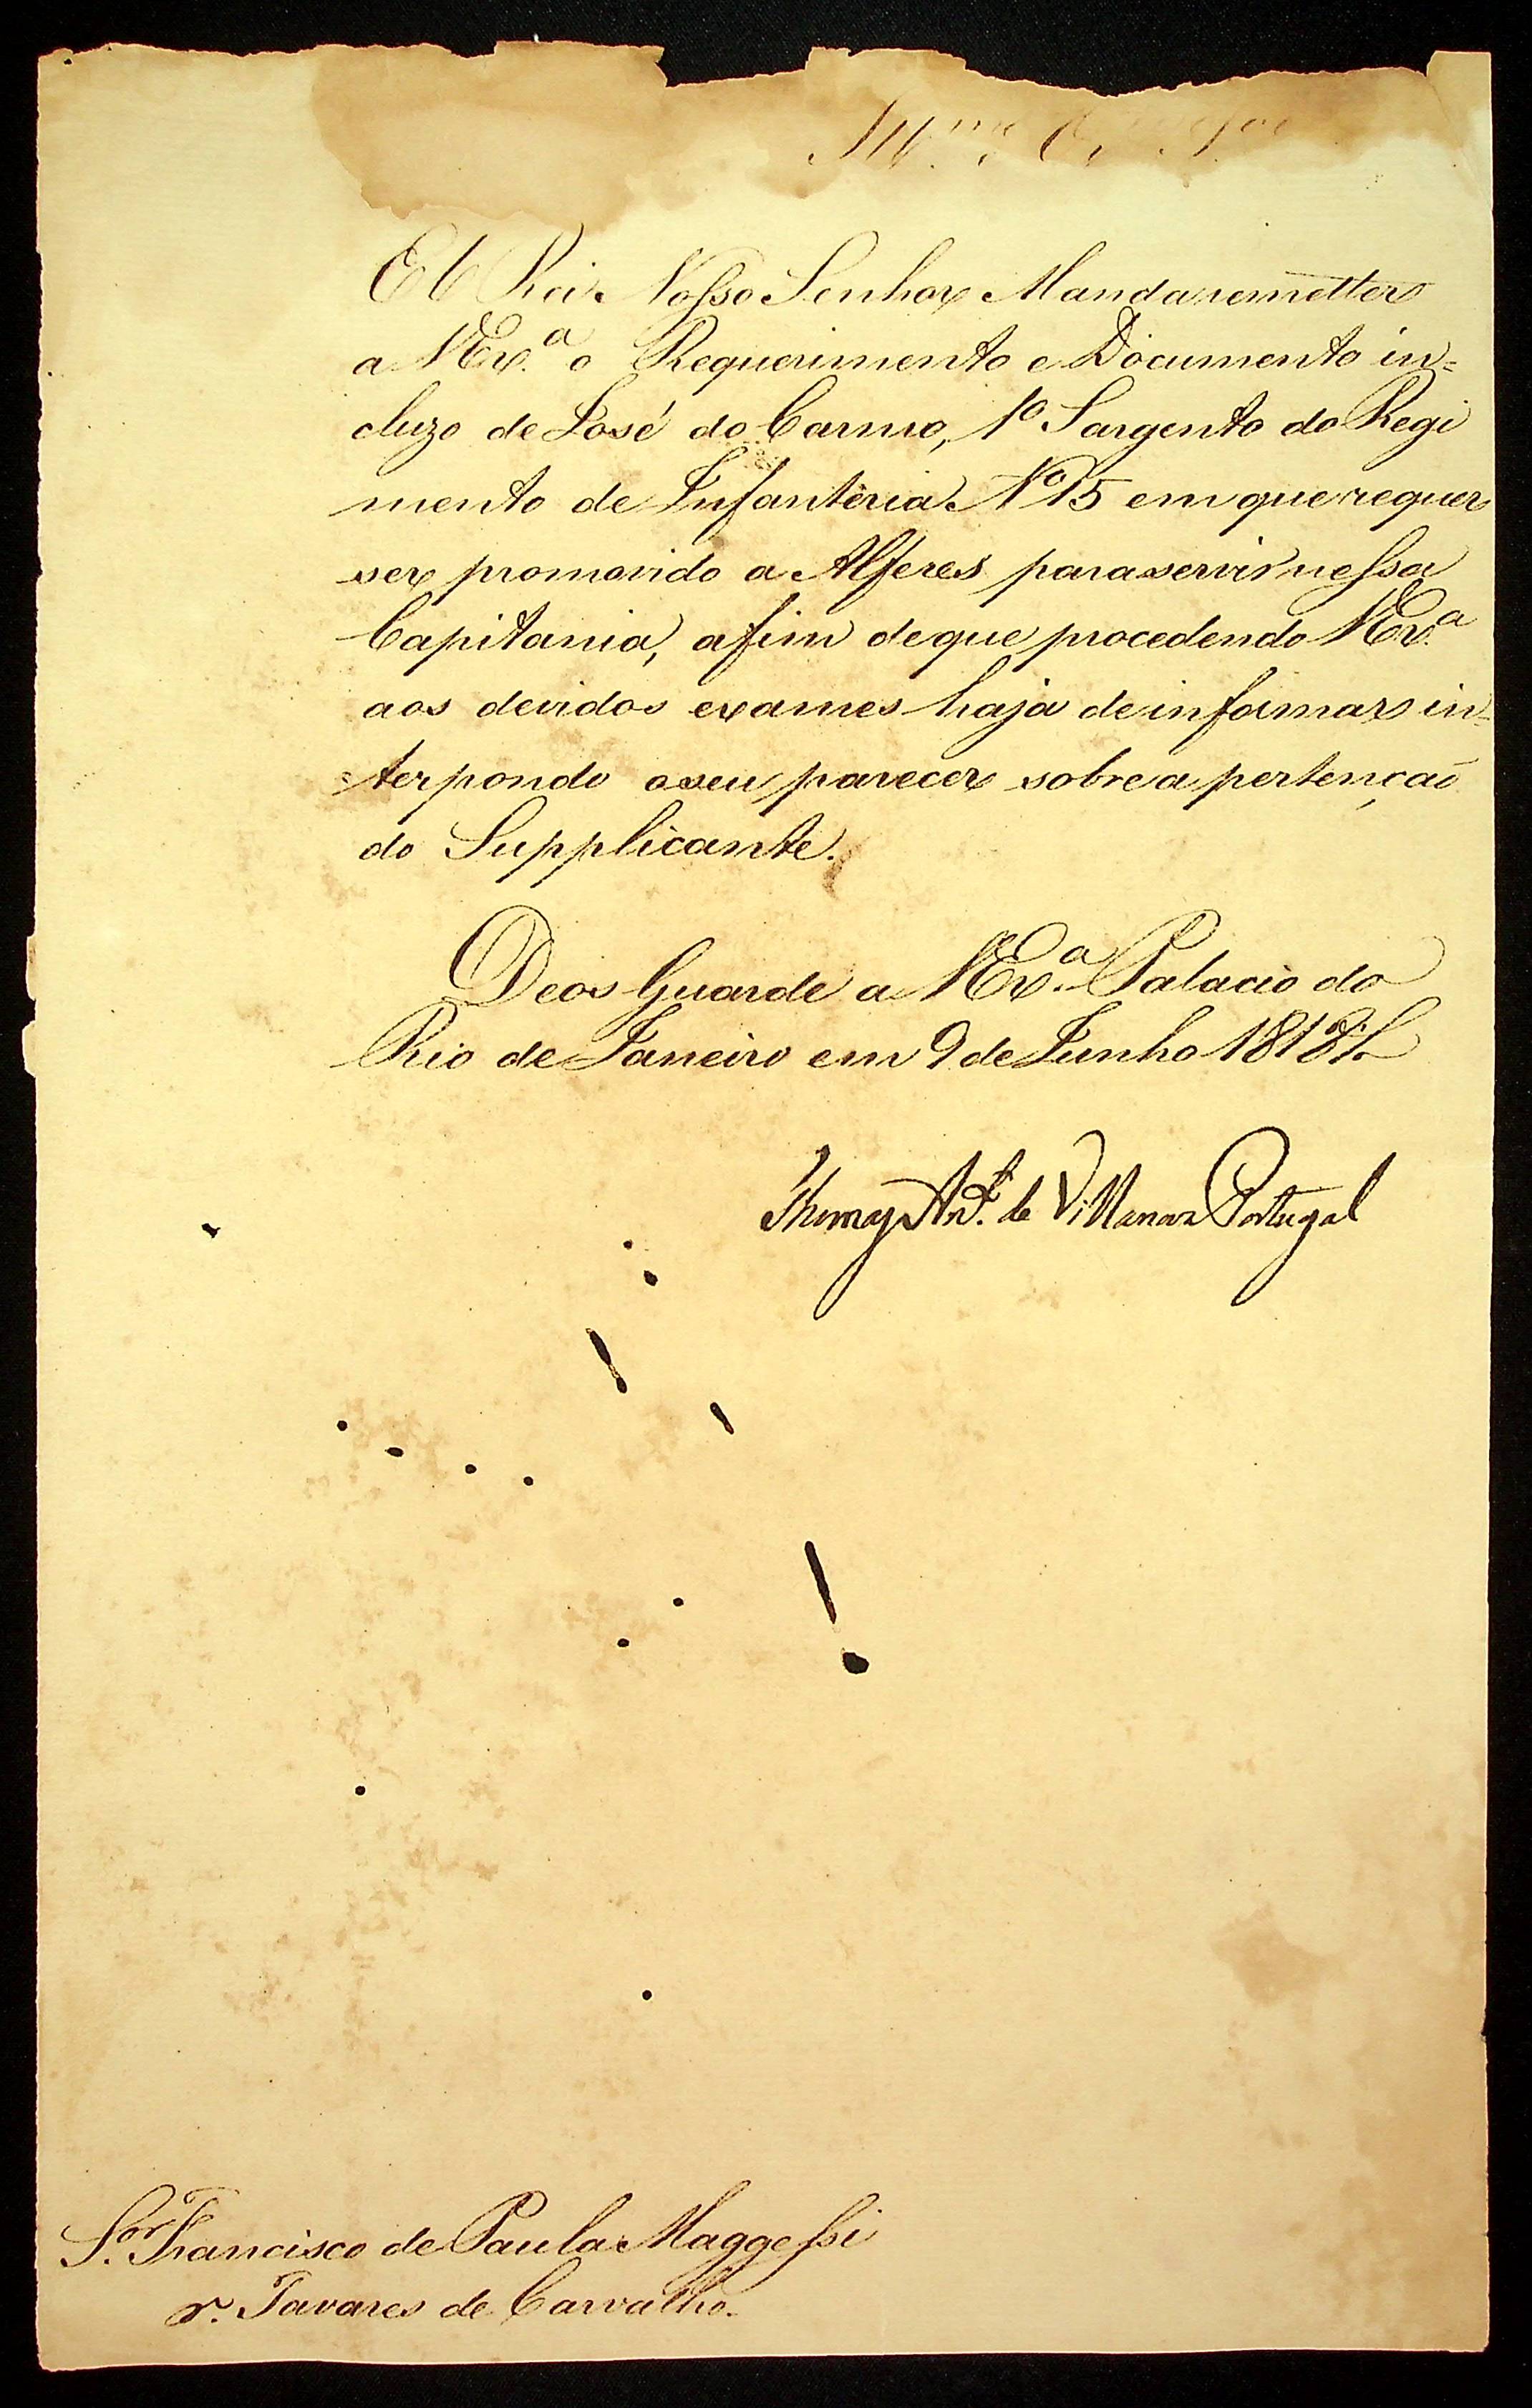 El Rei Nosso Senhor Manda remetter
a V Ex.ª o Requerimento e Documento in=
cluzo de José do Carmo, 1º Sargento do Regi
mento de Infanteria Nº 15 em que requer
ser promovido a Alferes para servir nessa
Capitania, afim de que procedendo V Ex.ª
aos devidos exames haja de informar in=
=terpondo o seu parecer sobre a pertenção
do Supplicante.
Deos Guarde a V Ex.ª Palacio do
Rio de Janeiro em 9 de Junho 1818
Thomaz Ant.º de Villanova Portugal
S.or Francisco de Paula Maggessi
Tavares de Carvalho.